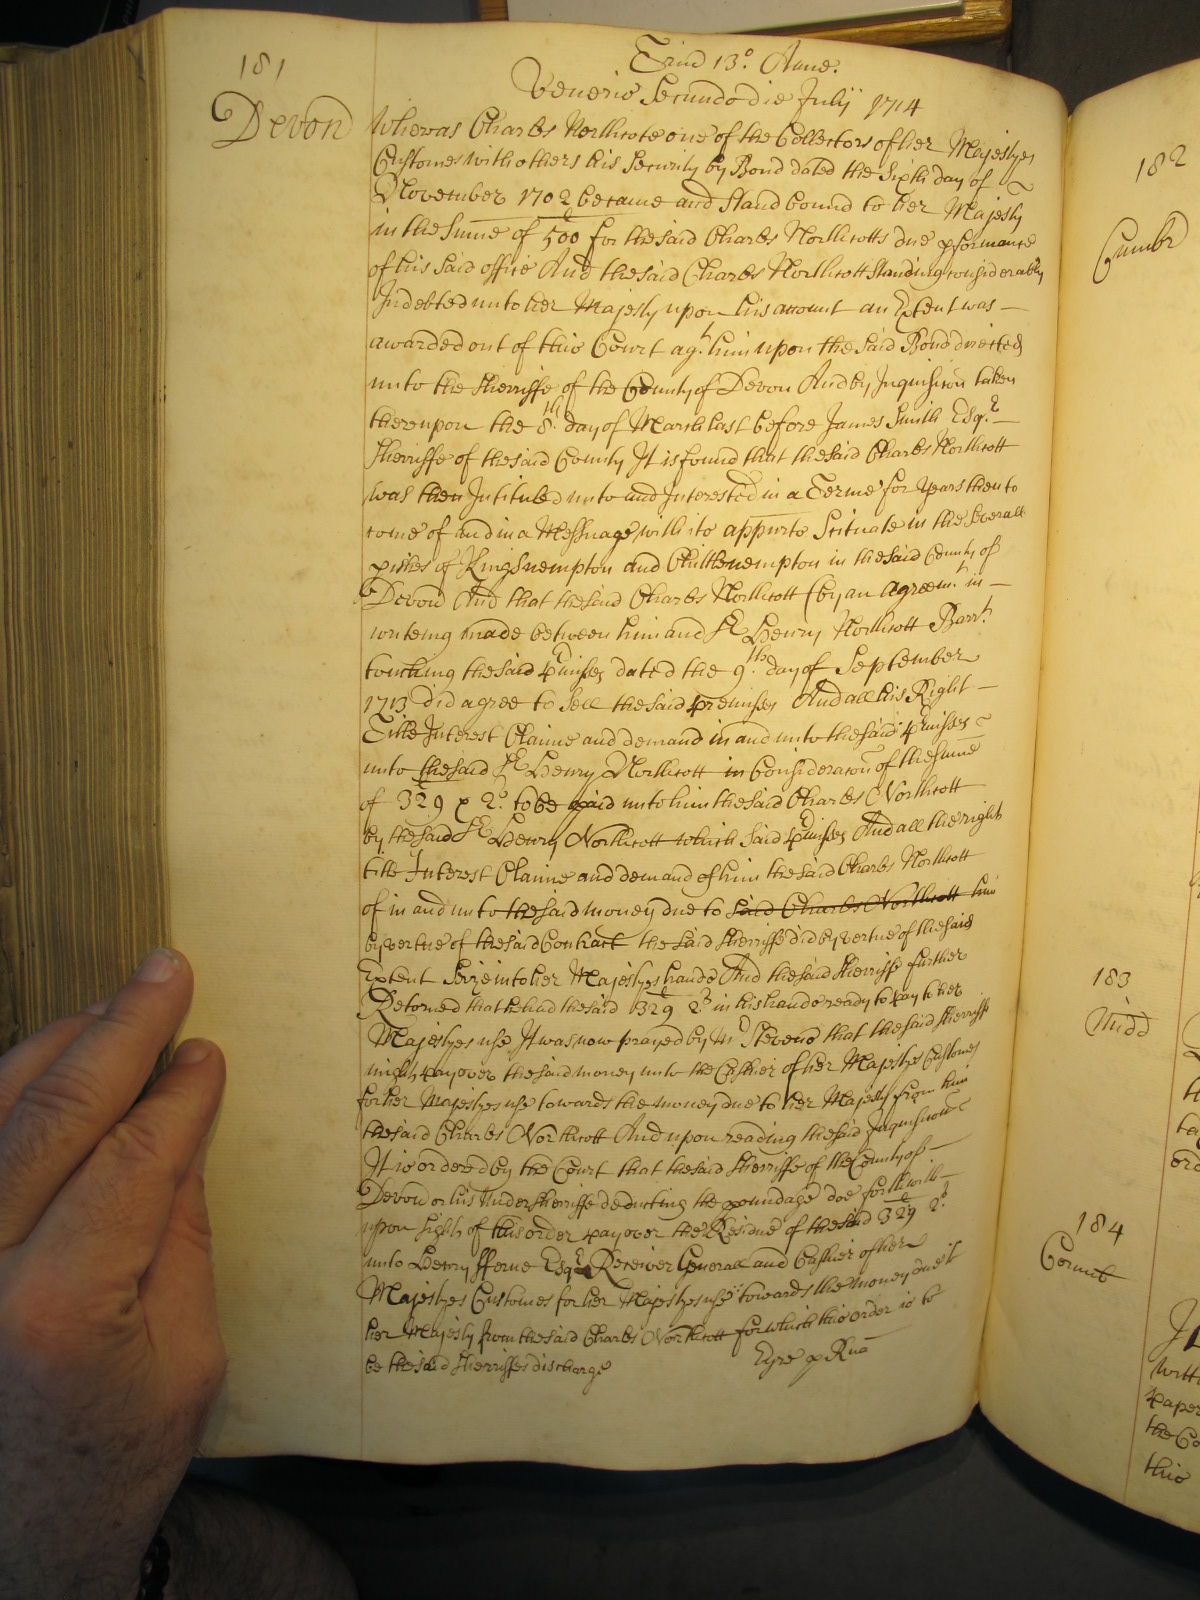 181
Trin 13.º Anne.
Veneris Secundo die July 1714
Devon
Whereas Charles Northcote one of the Collectors of her Majestyes
Customes with others his Security by Bond dated the Sixth day of
November 1702 became and stand bound to her Majesty
in the Summe of 500 for the said Charles Northcotts due pformance
of his said office And the said Charles Northcott standing considerably
Indebted unto her Majesty upon his account an Extent was
awarded out of this Court agt. him upon the said Bond directed
unto the Sherriffe of the County of Devon And by Inquisicon taken
thereupon the 8th. day of March last before James Smith Esqr.
Sherriffe of the said County It is found that the said Charles Northcott
was then Intituled unto and Interested in a Terme for years then to
come of and in a Messuage with its appurts Scituate in the Severall
pishes of Kingsnempton and Chittlenempton in the said County of
Devon And that the said Charles Northcott (by an Agreemt. in
writeing made between him and Sr. Henry Northcott Barrt.
touching the said pmisses dated the 9th. day of September
1713 did agree to Sell the said premisses And all his Right
Title Interest Claime and demand in and unto the said pmisses
unto the said Sr Henry Northcott in Consideracon of the summe
of 329 p 2s. to be paid unto him the said Charles Northcott
by the said Sr Henry Northcott which said pmisses And all the right
title Interest Claime and demand of him the said Charles Northcott
of in and unto the said money due to said Charles Northcott him
by vertue of the said Contract the said Sherriffe did by vertue of the said
Extent Seize into her Majestyes hands And the said Sherriffe further
Retorned that he had the said 329 2s in his hands ready to pay to her
Majestyes use It was now prayed by Mr Stevens that the said Sherriffe
might pay over the said money unto the Cashier of her Majestyes Customes
for her Majestyes use towards the money due to her Majesty from him
the said Charles Northcott And upon reading the said Inquisicon
It is ordered by the Court that the said Sherriffe of the County of
Devon or his Undersherriffe deducting the poundage doe forthwith
upon sight of this order pay over the Residue of the said 329 2s.
unto Henry fferne Esqr Receiver Generall and Cashier of her
Majestyes Customes for her Majestyes use towards the money due to
her Majesty from the said Charles Northcott for which this order is to
be the said Sherriffes discharge
Eyre p Rua
182
Cumbr
183
Midd
184
Cornub